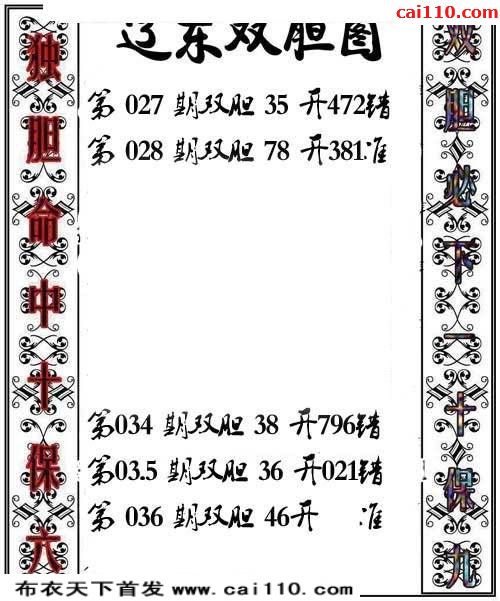 cai110.com
辽东双胆图
独胆命中十保六
双胆必下二十保九
第 027 期双胆 35 开472错
第 028 期双胆 78 开381准
第034 期双胆 38 开796错
第03.5 期双胆 36 开021错
第 036 期双胆 46开 准
布衣天下首发 www.cai110.com